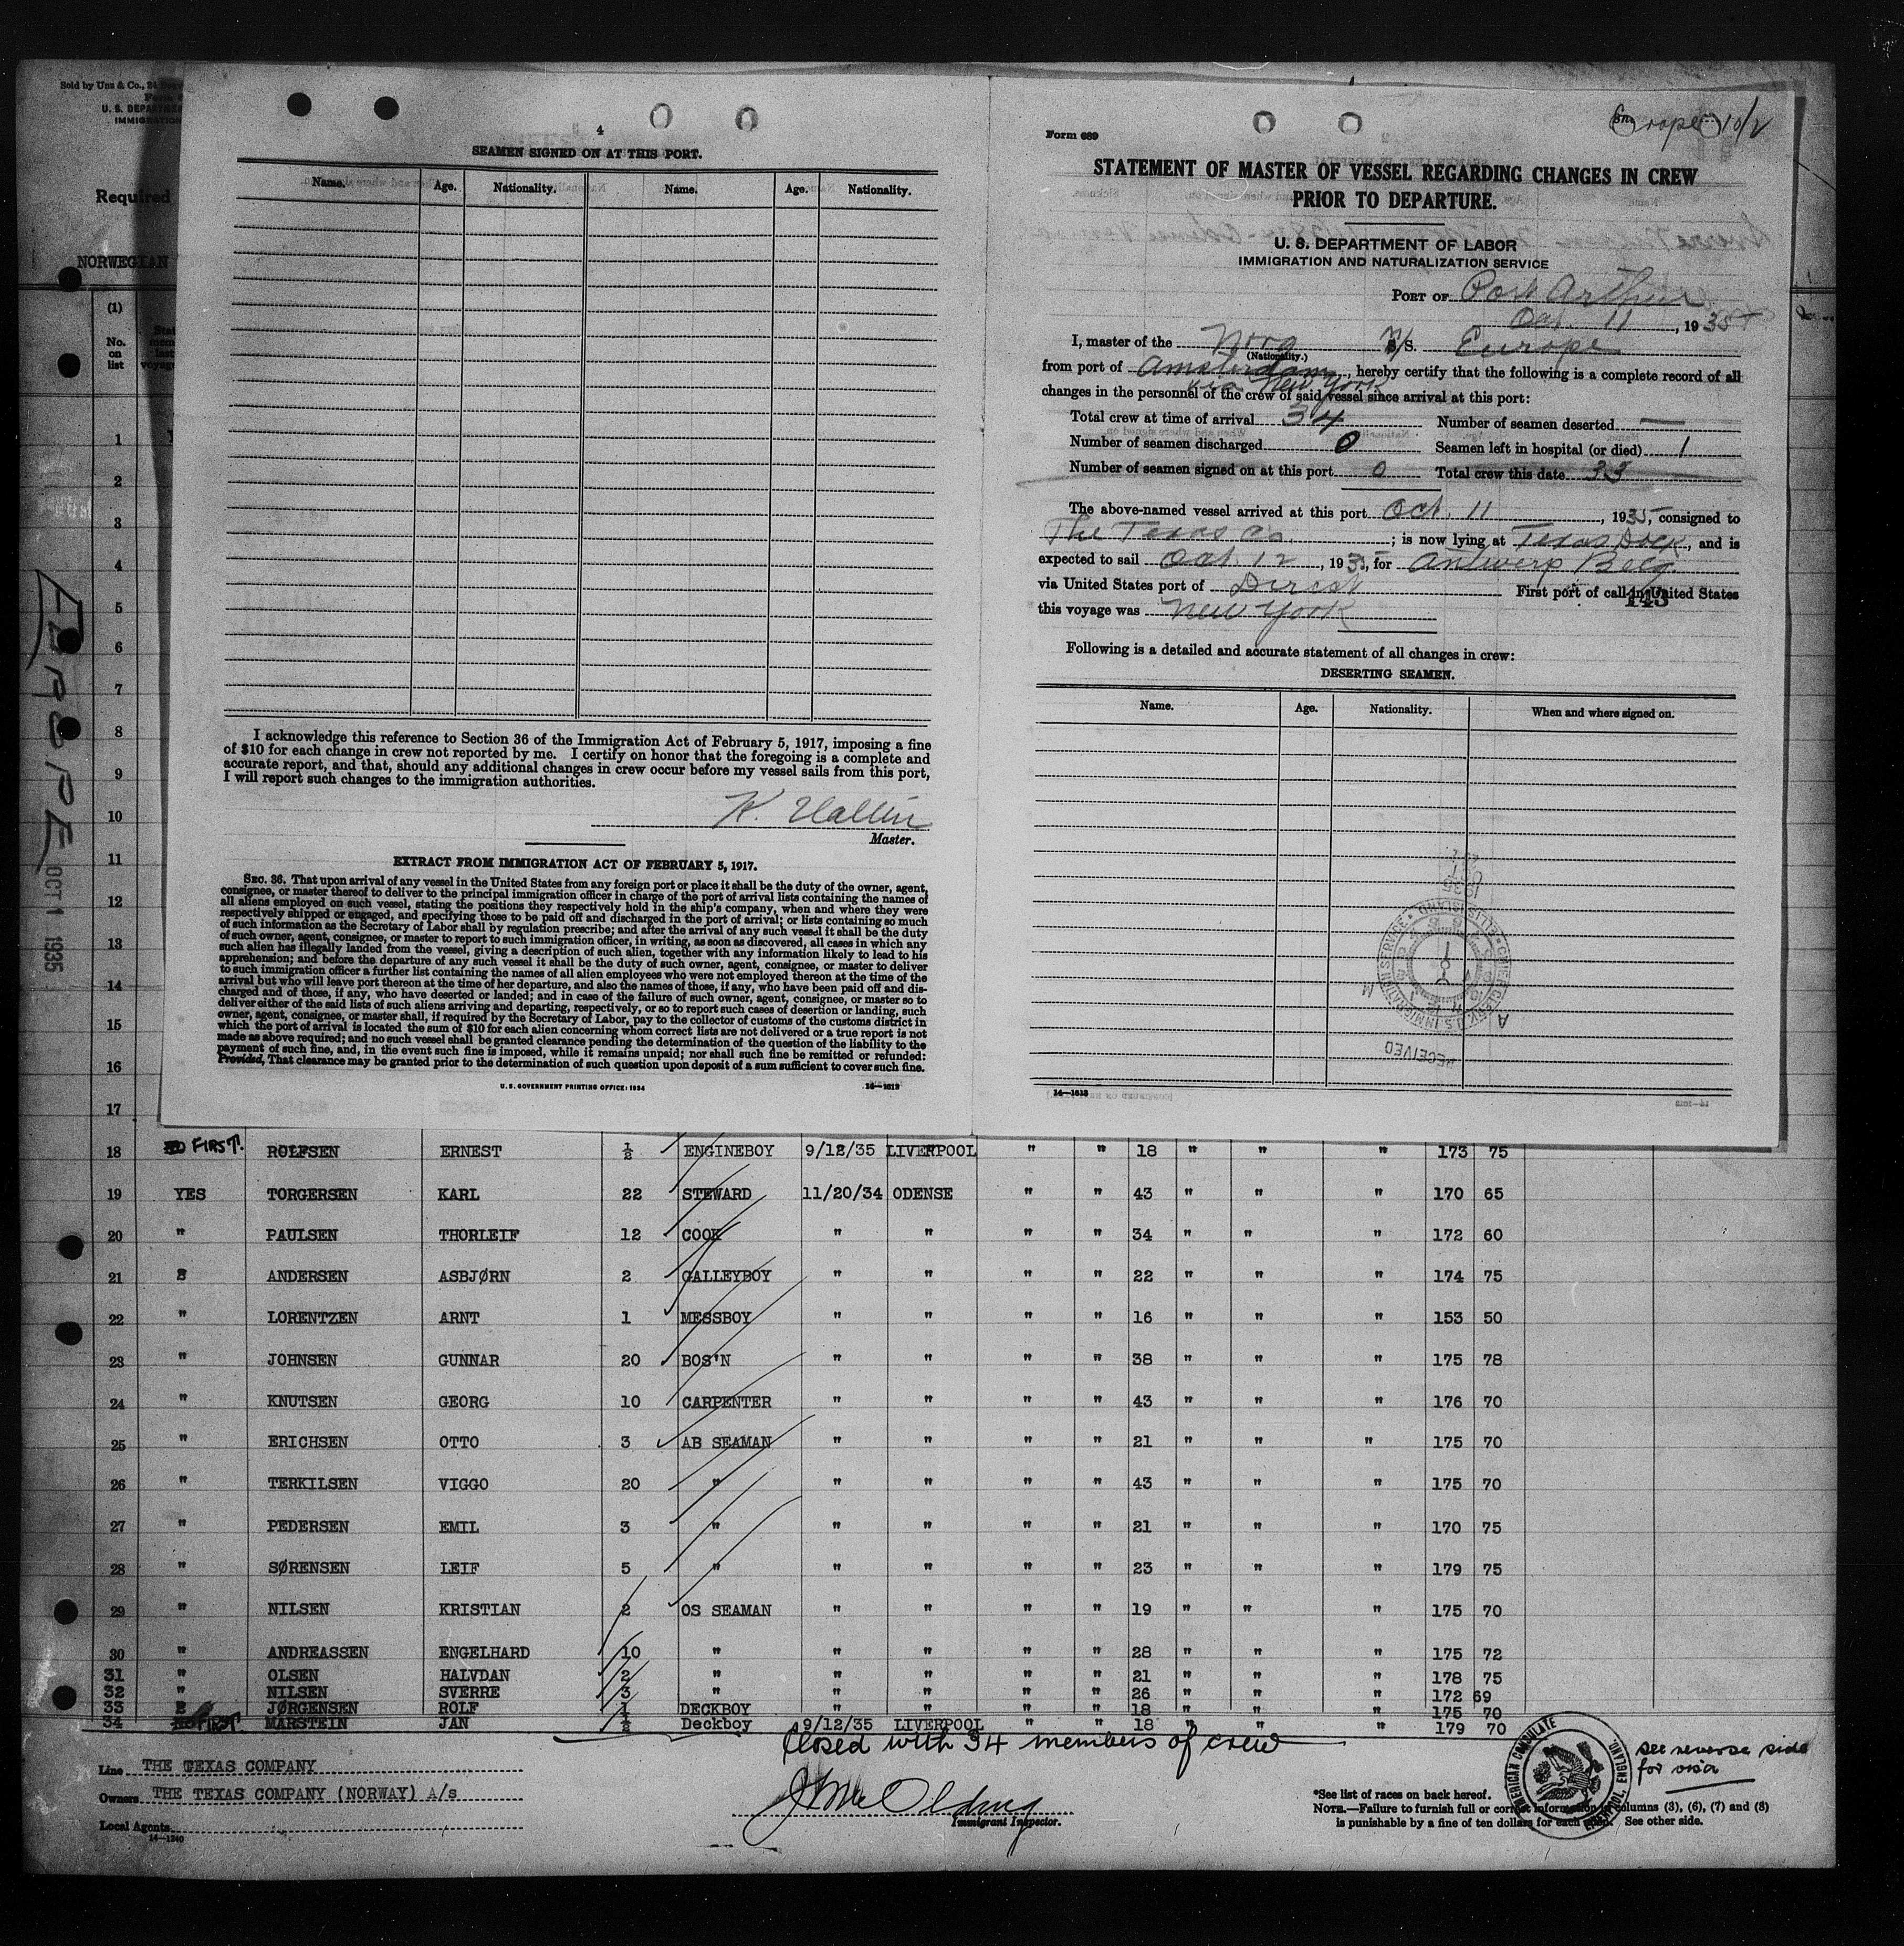 Sold by Unz & Co., 24
U. S. DEPARTME
IMMIGRATION
Required
NORWEGIAN
(1)
No.
on
list
1
2
3
4
5
6
7
8
9
10
11
12
13
14
15
16
17
EUROPE
OCT 1 1935
4
SEAMEN SIGNED ON AT THIS PORT.
Name. Age. Nationality. Name. Age. Nationality.
I acknowledge this reference to Section 36 of the Immigration Act of February 5, 1917, imposing a fine
of $10 for each change in crew not reported by me. I certify on honor that the foregoing is a complete and
accurate report, and that, should any additional changes in crew occur before my vessel sails from this port,
I will report such changes to the immigration authorities.
K. Wallin
Master.
EXTRACT FROM IMMIGRATION ACT OF FEBRUARY 5, 1917.
SEC. 36. That upon arrival of any vessel in the United States from any foreign port or place it shall be the duty of the owner, agent,
consignee, or master thereof to deliver to the principal immigration officer in charge of the port of arrival lists containing the names of
all aliens employed on such vessel, stating the positions they respectively hold in the ship's company, when and where they were
respectively shipped or engaged, and specifying those to be paid off and discharged in the port of arrival; or lists containing so much
of such information as the Secretary of Labor shall by regulation prescribe; and after the arrival of any such vessel it shall be the duty
of such owner, agent, consignee, or master to report to such immigration officer, in writing, as soon as discovered, all cases in which any
such alien has illegally landed from the vessel, giving a description of such alien, together with any information likely to lead to his
apprehension; and before the departure of any such vessel it shall be the duty of such owner, agent, consignee, or master to deliver
to such immigration officer a further list containing the names of all alien employees who were not employed thereon at the time of the
arrival but who will leave port thereon at the time of her departure, and also the names of those, if any, who have been paid off and dis-
charged and of those, if any, who have deserted or landed; and in case of the failure of such owner, agent, consignee, or master so to
deliver either of the said lists of such aliens arriving and departing, respectively, or so to report such cases of desertion or landing, such
owner, agent, consignee, or master shall, if required by the Secretary of Labor, pay to the collector of customs of the customs district in
which the port of arrival is located the sum of $10 for each alien concerning whom correct lists are not delivered or a true report is not
made as above required; and no such vessel shall be granted clearance pending the determination of the question of the liability to the
payment of such fine, and, in the event such fine is imposed, while it remains unpaid; nor shall such fine be remitted or refunded:
Provided, That clearance may be granted prior to the determination of such question upon deposit of a sum sufficient to cover such fine.
U. S. GOVERNMENT PRINTING OFFICE: 1934 14—1613
10/2
Form 689
STATEMENT OF MASTER OF VESSEL REGARDING CHANGES IN CREW
PRIOR TO DEPARTURE.
U. S. DEPARTMENT OF LABOR
IMMIGRATION AND NATURALIZATION SERVICE
PORT OF Port Arthur
Oct. 11, 1935
I, master of the Norg M/S. Europe
(Nationality.)
from port of Amsterdam, hereby certify that the following is a complete record of all
via New York
changes in the personnel of the crew of said vessel since arrival at this port:
Total crew at time of arrival 34 Number of seamen deserted —
Number of seamen discharged 0 Seamen left in hospital (or died) 1
Number of seamen signed on at this port 0 Total crew this date 33
The above-named vessel arrived at this port Oct. 11, 1935, consigned to
The Texas Co.; is now lying at Texas Dock, and is
expected to sail Oct. 12, 1935, for Antwerp Belg.
via United States port of Direct First port of call in United States
143
this voyage was New York
Following is a detailed and accurate statement of all changes in crew:
DESERTING SEAMEN.
Name. Age. Nationality. When and where signed on.
RECEIVED
14—1613
18 FIRST. ROLFSEN ERNEST ½ ENGINEBOY 9/12/35 LIVERPOOL " " 18 " " " 173 75
19 YES TORGERSEN KARL 22 STEWARD 11/20/34 ODENSE " " 43 " " " 170 65
20 " PAULSEN THORLEIF 12 COOK " " " " 34 " " " 172 60
21 " ANDERSEN ASBJØRN 2 GALLEYBOY " " " " 22 " " " 174 75
22 " LORENTZEN ARNT 1 MESSBOY " " " " 16 " " " 153 50
23 " JOHNSEN GUNNAR 20 BOS'N " " " " 38 " " " 175 78
24 " KNUTSEN GEORG 10 CARPENTER " " " " 43 " " " 176 70
25 " ERICHSEN OTTO 3 AB SEAMAN " " " " 21 " " " 175 70
26 " TERKILSEN VIGGO 20 " " " " " 43 " " " 175 70
27 " PEDERSEN EMIL 3 " " " " " 21 " " " 170 75
28 " SØRENSEN LEIF 5 " " " " " 23 " " " 179 75
29 " NILSEN KRISTIAN 2 OS SEAMAN " " " " 19 " " " 175 70
30 " ANDREASSEN ENGELHARD 10 " " " " " 28 " " " 175 72
31 " OLSEN HALVDAN 2 " " " " " 21 " " " 178 75
32 " NILSEN SVERRE 3 " " " " " 26 " " " 172 69
33 " JØRGENSEN ROLF 1 DECKBOY " " " " 18 " " " 175 70
34 FIRST. MARSTEIN JAN ½ Deckboy 9/12/35 LIVERPOOL " " 18 " " " 179 70
Closed with 34 members of crew
Line THE TEXAS COMPANY
Owners THE TEXAS COMPANY (NORWAY) A/s
Local Agents
14—1240
Immigrant Inspector.
AMERICAN CONSULATE
LIVERPOOL, ENGLAND.
see reverse side
for visa
*See list of races on back hereof.
NOTE.—Failure to furnish full or correct information in columns (3), (6), (7) and (8)
is punishable by a fine of ten dollars for each alien. See other side.